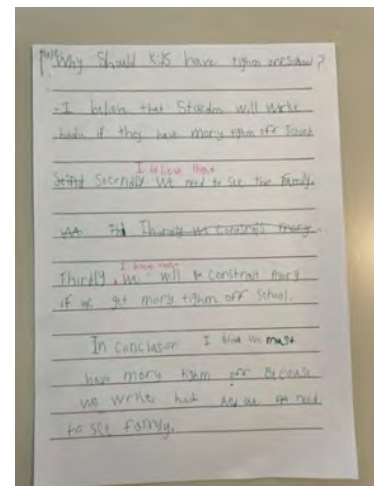 Why Should kids have tighm off School?
-I beleiv that Studdns will write
hadu if they have mory tighm off School
I beleve that
Secendly We need to see the Family.
Thirdly we constrats mory.
Thirdly, we will be constrait mory
if we get mory tighm off School.
In conclusion I blive we must
have mory tighm off Because
we write had And we need
to see family.